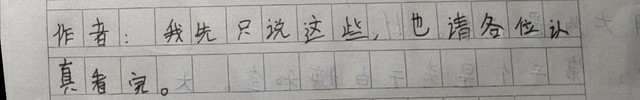 作者：我先只说这些，也请各位认
真看完。